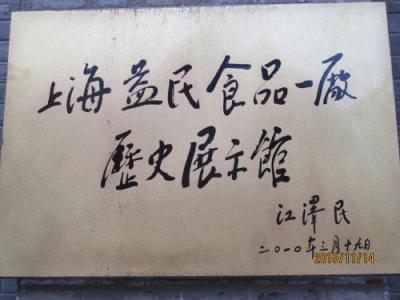 上海益民食品一廠
歷史展示館
江澤民
二〇一〇年三月十九日
2015/11/14